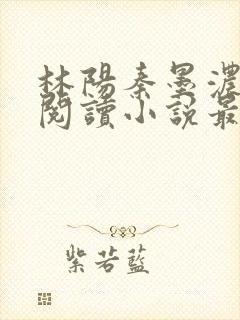 林陽秦墨濃
閱讀小說最
紫若藍